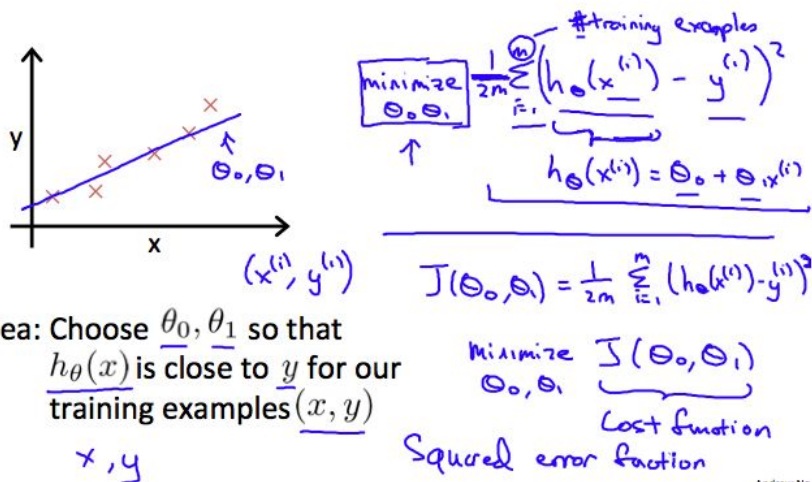 y
x
θ₀, θ₁
(x⁽ⁱ⁾, y⁽ⁱ⁾)
ea: Choose θ₀, θ₁ so that
h_θ(x) is close to y for our
training examples (x, y)
x, y
#training examples
minimize θ₀ θ₁ 1/2m Σ_{i=1}^{m} (h_θ(x⁽ⁱ⁾) - y⁽ⁱ⁾)²
h_θ(x⁽ⁱ⁾) = θ₀ + θ₁x⁽ⁱ⁾
J(θ₀, θ₁) = 1/2m Σ_{i=1}^{m} (h_θ(x⁽ⁱ⁾) - y⁽ⁱ⁾)²
minimize θ₀, θ₁ J(θ₀, θ₁)
Cost function
Squared error function